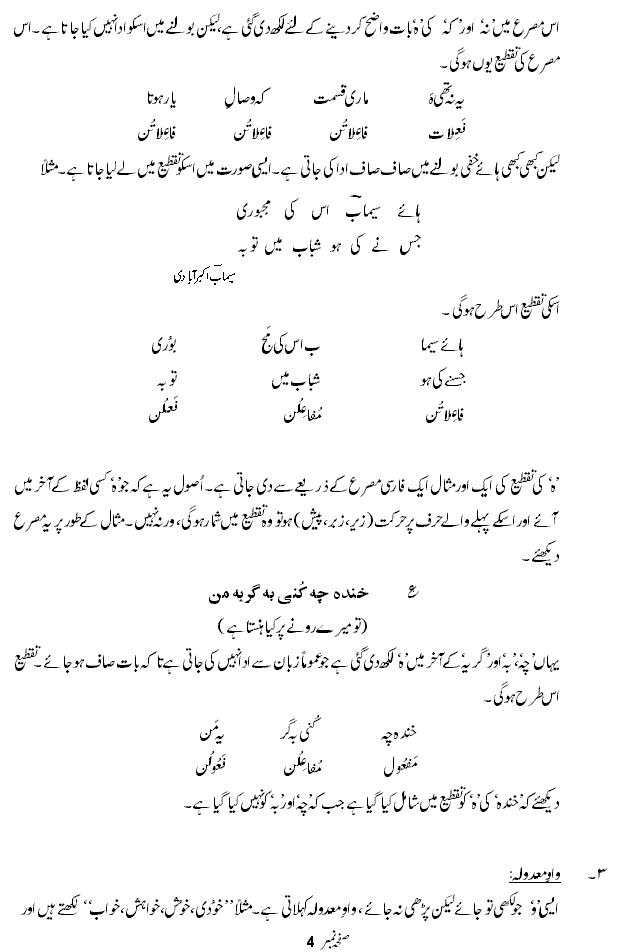 اس مصرع میں 'نہ' اور 'کہ' کی 'ہ' بات واضح کر دینے کے لئے لکھ دی گئی ہے، لیکن بولنے میں اسکو ادا نہیں کیا جاتا ہے۔ اس
مصرع کی تقطیع یوں ہو گی۔
یہ نہ تھی ہَ ماری قسمت کہ وصالِ یار ہوتا
فَعِلات فاعِلاتُن فاعِلاتُن فاعِلاتُن
لیکن کبھی کبھی ہائے خفی بولنے میں صاف صاف ادا کی جاتی ہے۔ ایسی صورت میں اسکو تقطیع میں لے لیا جاتا ہے۔ مثلاً
ہائے سیمابؔ اس کی مجبوری
جس نے کی ہو شباب میں توبہ
سیمابؔ اکبر آبادی
اسکی تقطیع اس طرح ہو گی۔
ہائے سیما ب اس کی مَج بوُری
جسنے کی ہو شباب میں توبہ
فاعِلاتُن مُفاعِلُن فَعلُن
'ہ' کی تقطیع کی ایک اور مثال ایک فارسی مصرع کے ذریعے سے دی جاتی ہے۔ اُصول یہ ہے کہ جو 'ہ' کسی لفظ کے آخر میں
آئے اور اسکے پہلے والے حرف پر حرکت (زیر، زبر، پیش) ہو تو وہ تقطیع میں شمار ہو گی، ورنہ نہیں۔ مثال کے طور پر یہ مصرع
دیکھئے۔
ع خندہ چه کُنی به گریه من
(تو میرے رونے پر کیا ہنستا ہے)
یہاں 'چہ'، 'بہ' اور 'گریہ' کے آخر میں 'ہ' لکھ دی گئی ہے جو عموماً زبان سے ادا نہیں کی جاتی ہے تا کہ بات صاف ہو جائے۔ تقطیع
اس طرح ہو گی۔
خندہ چہ کُنی بہ گر یہ مَن
مَفعُول مُفاعِلُن فَعُولُن
دیکھئے کہ 'خندہ' کی 'ہ' کو تقطیع میں شامل کیا گیا ہے جب کہ 'چہ' اور 'بہ' کو نہیں کیا گیا ہے۔
۳۔ واوِ معدولہ:
ایسی 'و' جو لکھی تو جائے لیکن پڑھی نہ جائے، واوِ معدولہ کہلاتی ہے۔ مثلاً "خوُدی، خوش، خواہش، خواب" لکھتے ہیں اور
صفحہ نمبر 4